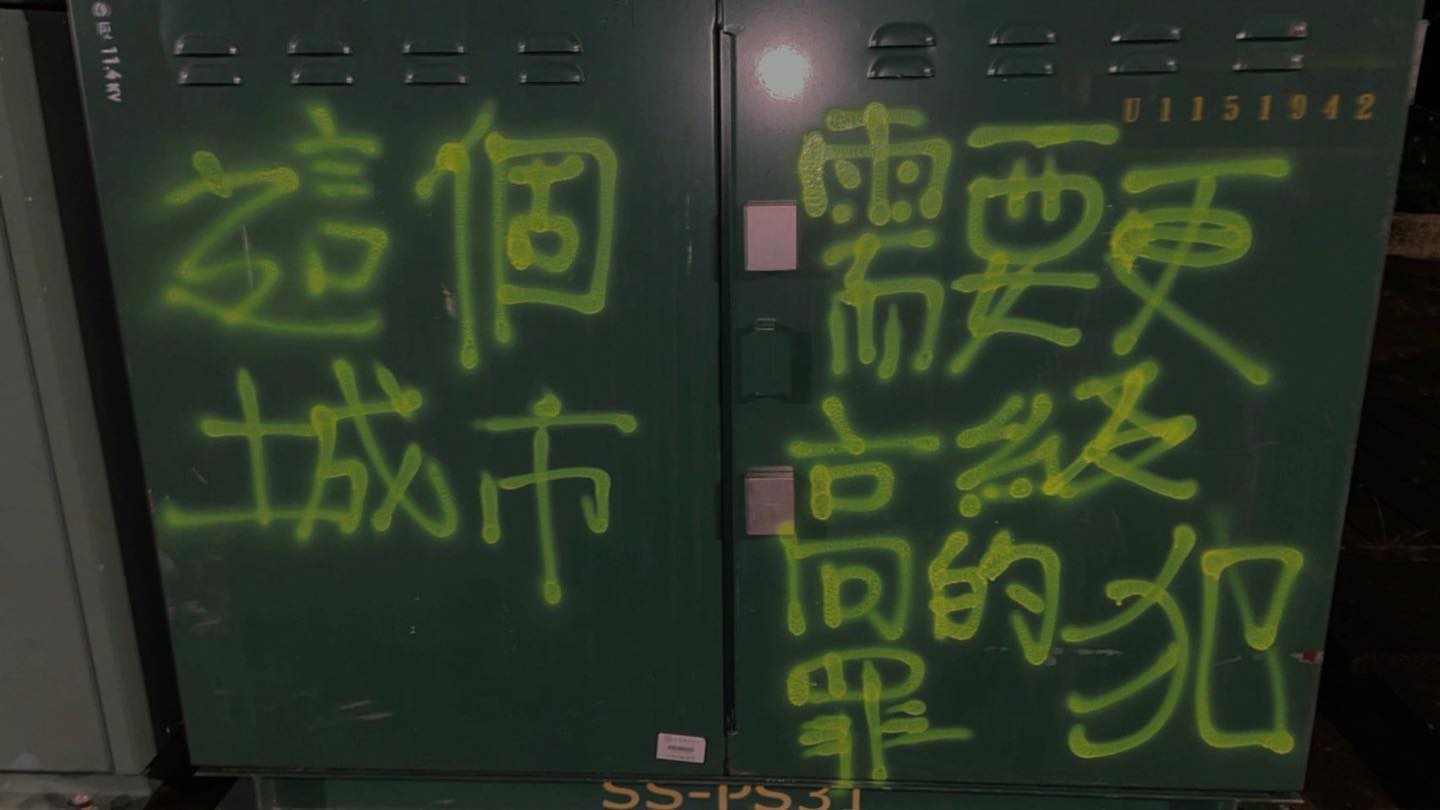 11.4 KV
U1151942
這個
城市
需要更
高級
的犯
罪
SS-PS31